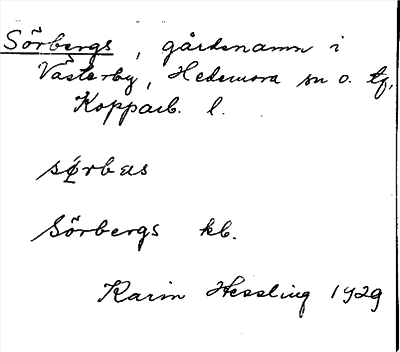 Sörbergs, gårdsnamn i
Västerby, Hedemora sn o. tf,
Kopparb. l.
sørbæs
Sörbergs kb.
Karin Hessling 1929